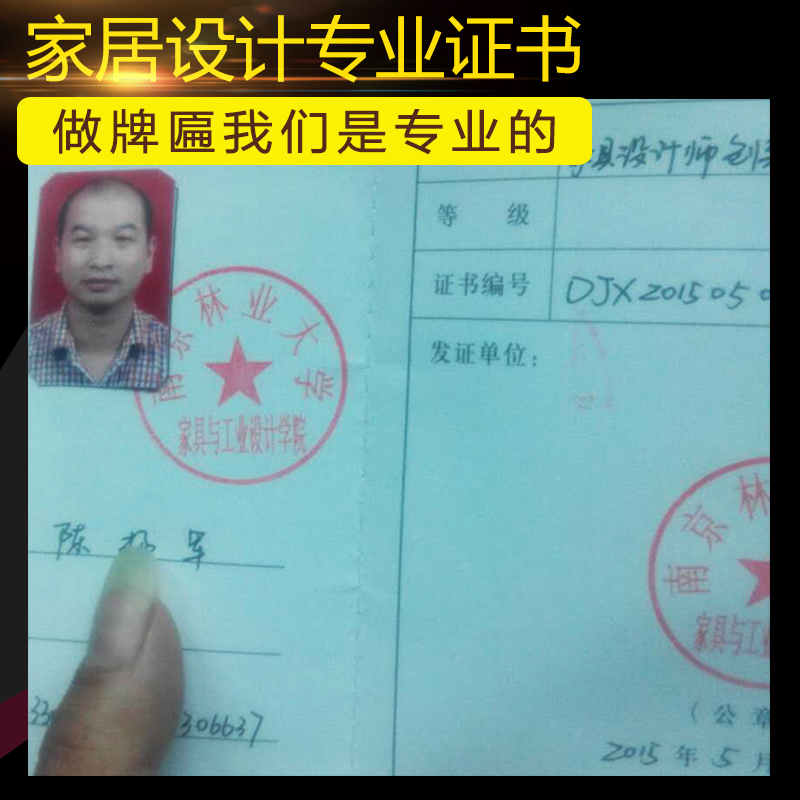 家居设计专业证书
做牌匾我们是专业的
具设计师创
等 级
证书编号 DJX201505
发证单位：
南京林业大学
家具与工业设计学院
陈 军
306637
南京林
家具与工
（公章
2015年5月